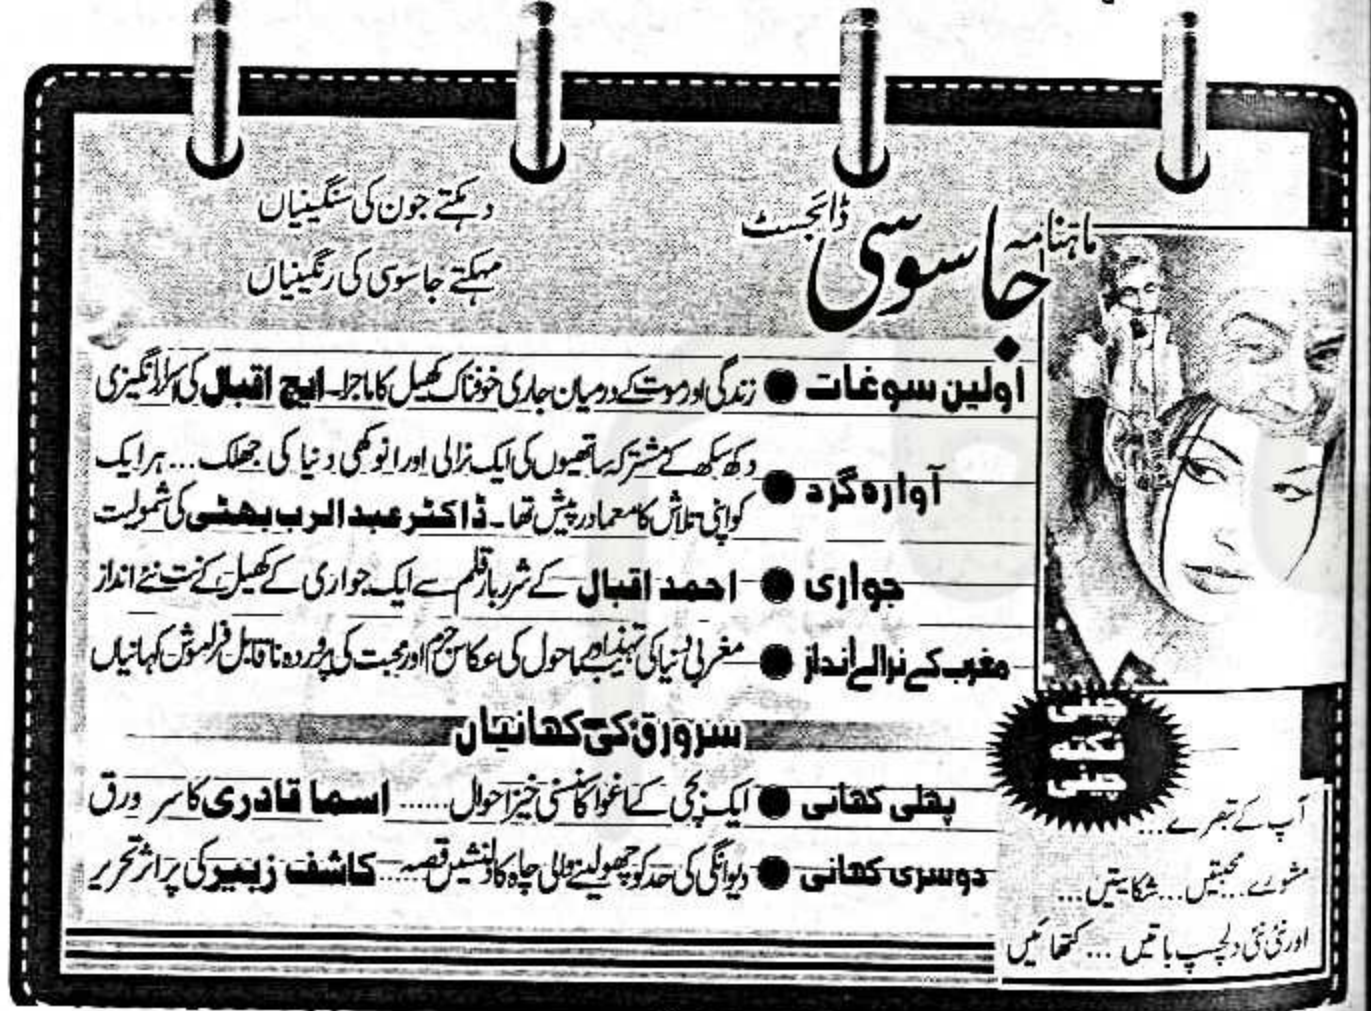 ماہنامہ جاسوسی ڈائجسٹ
دہکتے جون کی سنگینیاں
مہکتے جاسوسی کی رنگینیاں
اولین سوغات ● زندگی اور موت کے درمیان جاری خوفناک کھیل کا ماجرا۔ ایچ اقبال کی کارانگیزی
آوارہ گرد ● دکھ سکھ کے مشترکہ ساتھیوں کی ایک نرالی اور انوکھی دنیا کی جھلک... ہر ایک
کو اپنی تلاش کا معما درپیش تھا۔ ڈاکٹر عبدالرب بھٹی کی شمولیت
جواری ● احمد اقبال کے شرربار قلم سے ایک جواری کے کھیل کے نت نئے انداز
مغرب کے نرالے انداز ● مغربی دنیا کی تہذیب اور ماحول کی عکاس جرم اور محبت کی پروردہ ناقابل فراموش کہانیاں
سرورق کی کہانیاں
پہلی کہانی ● ایک بچی کے اغوا کا سنسنی خیز احوال...... اسما قادری کا سرورق
دوسری کہانی ● دیوانگی کی حد کو چھو لینے والی چاہ کا دلنشیں قصہ.... کاشف زبیر کی پراثر تحریر
چینی
نکتہ
چینی
آپ کے تبصرے...
مشورے... محبتیں... شکایتیں...
اور نئی نئی دلچسپ باتیں... کتھائیں